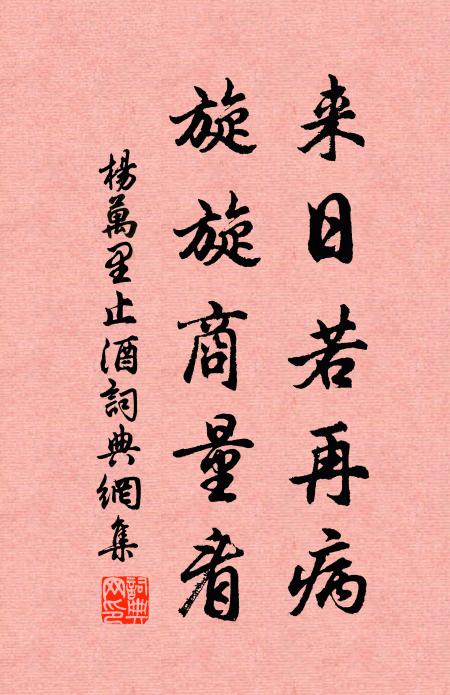 来日若再病
旋旋商量看
楊萬里止酒詞典網集
詞典
网印